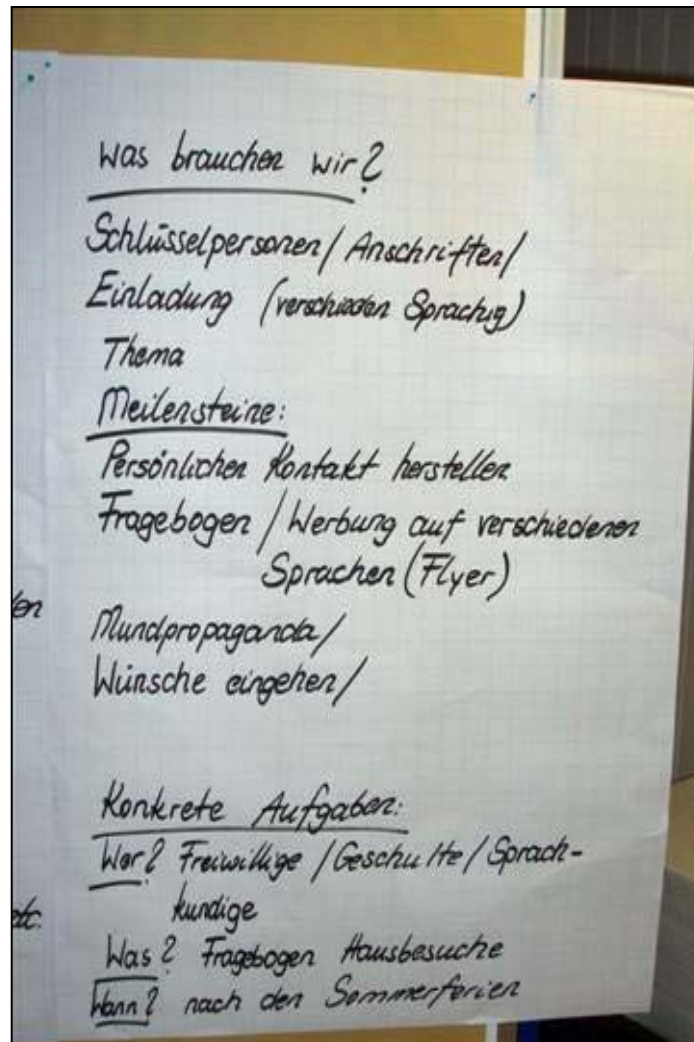 Was brauchen wir?
Schlüsselpersonen / Anschriften /
Einladung (verschieden Sprachig)
Thema
Meilensteine:
Persönlichen Kontakt herstellen
Fragebogen / Werbung auf verschiedenen
Sprachen (Flyer)
Mundpropaganda /
Wünsche eingehen /
Konkrete Aufgaben:
Wer? Freiwillige / Geschulte / Sprach-
kundige
etc.
Was? Fragebogen Hausbesuche
Wann? nach den Sommerferien